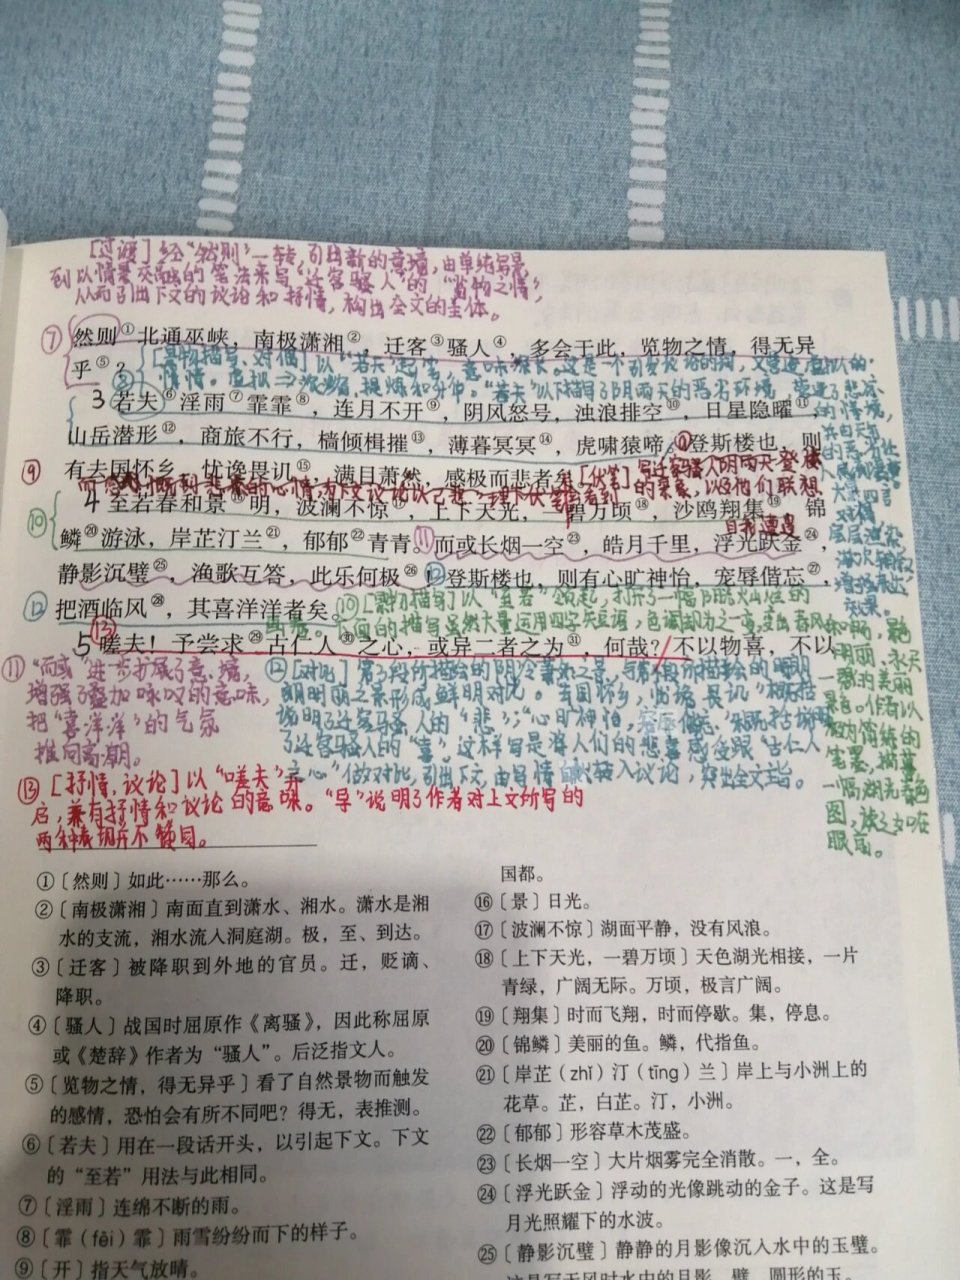 [过渡] 经“然则”一转，引出新的意境，由单纯写景
到以情景交融的笔法来写“迁客骚人”的“览物之情”，
从而引出下文的议论和抒情，构出全文的主体。
⑦ 然则①北通巫峡，南极潇湘②，迁客③骚人④，多会于此，览物之情，得无异
乎⑤？
⑧ [景物描写、对偶] 以“若夫”起笔，意味深长。这是一个引发议论的词，又
3 若夫⑥淫雨⑦霏霏⑧，连月不开⑨，阴风怒号，浊浪排空⑩，日星隐曜⑪，
山岳潜形⑫，商旅不行，樯倾楫摧⑬，薄暮冥冥⑭，虎啸猿啼。⑨登斯楼也，则
⑨ 有去国怀乡，忧谗畏讥⑮，满目萧然，感极而悲者矣。
[伏笔] 写迁客骚人阴雨天登楼
4 至若春和景⑯明，波澜不惊⑰，上下天光，一碧万顷⑱，沙鸥翔集⑲，锦
⑩ 鳞⑳游泳，岸芷汀兰㉑，郁郁㉒青青。⑪而或长烟一空㉓，皓月千里，浮光跃金㉔，
静影沉璧㉕，渔歌互答，此乐何极㉖！⑫登斯楼也，则有心旷神怡，宠辱偕忘㉗，
⑫ 把酒临风㉘，其喜洋洋者矣。
⑩ [景物描写] 以“至若”领起，打开了一幅阳光灿烂的
画卷。下面的描写虽然大量运用四字短语，色调却为之一变，
5 ⑬嗟夫！予尝求㉙古仁人㉚之心，或异二者之为㉛，何哉？不以物喜，不以
⑪ “而或”进一步扩展了意境，
增强了叠加咏叹的意味，
把“喜洋洋”的气氛
推向高潮。
⑫ [对比]
晴明时丽之景形成鲜明对比。
说明了迁客骚人的“悲”；“心旷神怡，宠辱偕忘”
了迁客骚人的“喜”。这样写是将人们的悲喜感受跟“古仁人
之心”做对比，引出下文，由写情转入议论，突出全文主旨。
一幅湖光春色
图，读之如在
眼前。
⑬ [抒情、议论] 以“嗟夫”开
启，兼有抒情和议论的意味。“异”说明了作者对上文所写的
两种表现并不赞同。
①〔然则〕如此……那么。
②〔南极潇湘〕南面直到潇水、湘水。潇水是湘
水的支流，湘水流入洞庭湖。极，至、到达。
③〔迁客〕被降职到外地的官员。迁，贬谪、
降职。
④〔骚人〕战国时屈原作《离骚》，因此称屈原
或《楚辞》作者为“骚人”。后泛指文人。
⑤〔览物之情，得无异乎〕看了自然景物而触发
的感情，恐怕会有所不同吧？得无，表推测。
⑥〔若夫〕用在一段话开头，以引起下文。下文
的“至若”用法与此相同。
⑦〔淫雨〕连绵不断的雨。
⑧〔霏（fēi）霏〕雨雪纷纷而下的样子。
⑨〔开〕指天气放晴。
国都。
⑯〔景〕日光。
⑰〔波澜不惊〕湖面平静，没有风浪。
⑱〔上下天光，一碧万顷〕天色湖光相接，一片
青绿，广阔无际。万顷，极言广阔。
⑲〔翔集〕时而飞翔，时而停歇。集，停息。
⑳〔锦鳞〕美丽的鱼。鳞，代指鱼。
㉑〔岸芷（zhǐ）汀（tīng）兰〕岸上与小洲上的
花草。芷，白芷。汀，小洲。
㉒〔郁郁〕形容草木茂盛。
㉓〔长烟一空〕大片烟雾完全消散。一，全。
㉔〔浮光跃金〕浮动的光像跳动的金子。这是写
月光照耀下的水波。
㉕〔静影沉璧〕静静的月影像沉入水中的玉璧。
这是写无风时水中的月影。璧，圆形的玉。